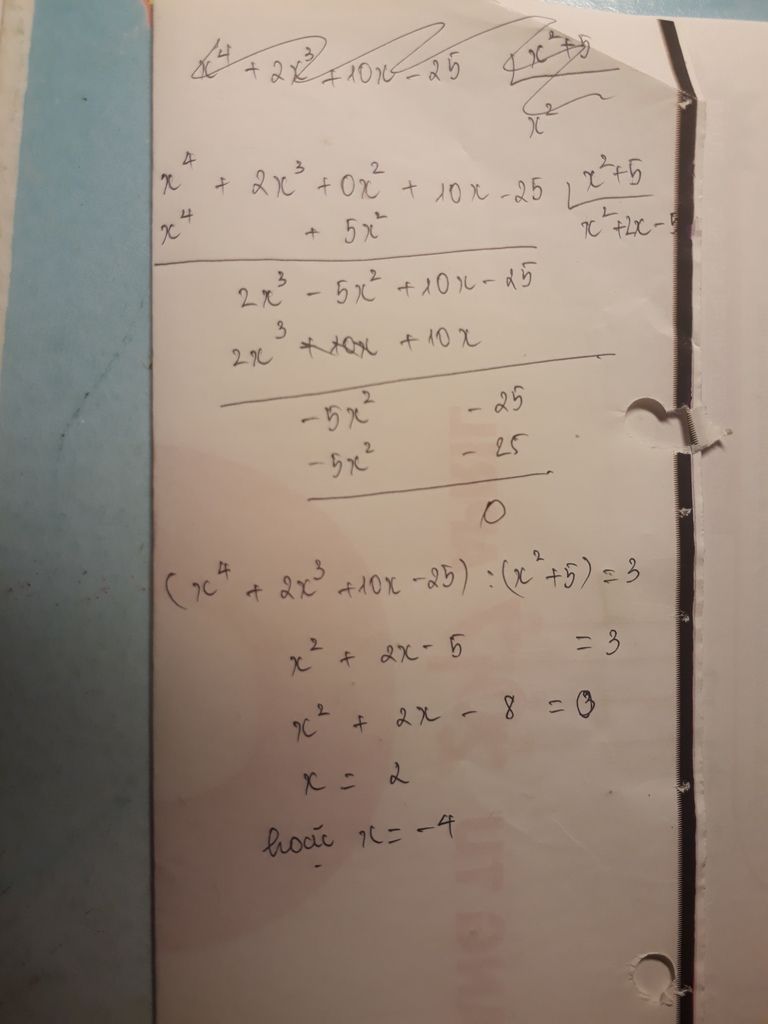 x⁴ + 2x³ + 10x - 25 x² + 5
x²
x⁴ + 2x³ + 0x² + 10x - 25 x² + 5
x⁴ + 5x² x² + 2x - 5
2x³ - 5x² + 10x - 25
2x³ + 10x + 10x
-5x² - 25
-5x² - 25
0
(x⁴ + 2x³ + 10x - 25) : (x² + 5) = 3
x² + 2x - 5 = 3
x² + 2x - 8 = 0
x = 2
hoặc x = -4